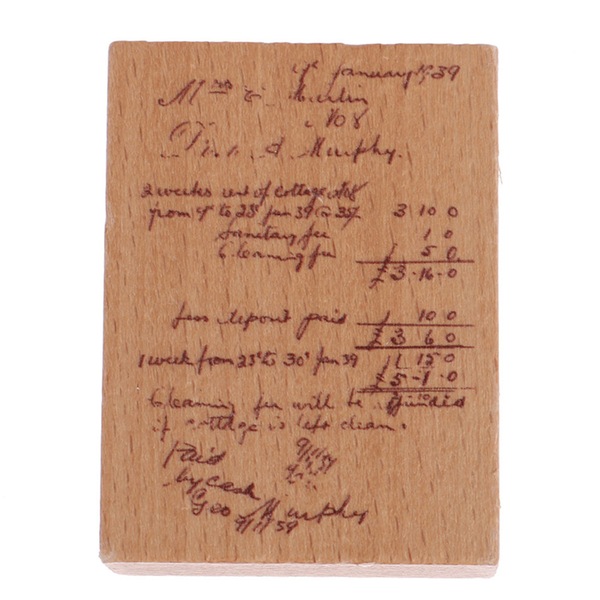 January 1939
No 8
Murphy.
2 weeks rent of cottage No8
from 9t to 23d Jan 39 @ 35/ 3 10 0
Sanitary fee 1 0
Cleaning fee 5 0
£3·16·0
Less deposit paid 10 0
£3 6 0
1 week from 23d to 30t Jan 39 1 15 0
£5-1·0
Cleaning fee will be
if cottage is left clean.
Paid
by cash
Geo Murphy